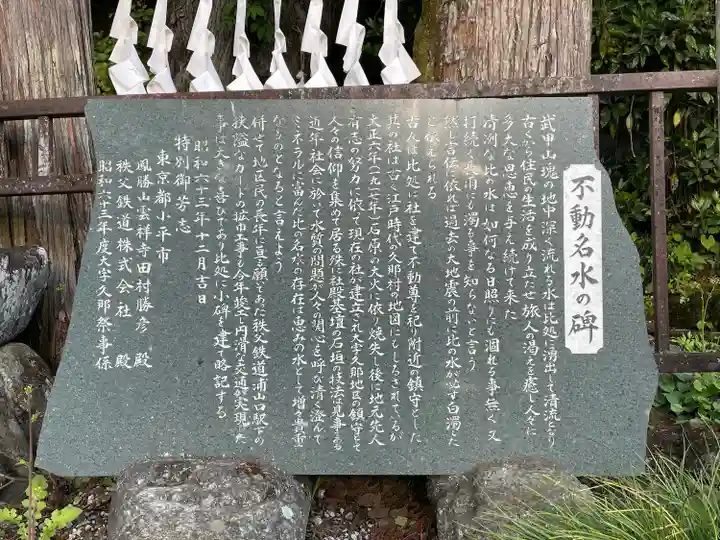 不動名水の碑
武甲山塊の地中深く流れる水は比処に湧出して清流となり
古くから住民の生活を成り立たせ旅人の渇えを癒し人々に
多大な恩恵を与え続けて来た
清冽な比の水は如何なる日照りにも涸れる事無く又
打続く長雨にも濁る事を知らないと言う
然し言伝に依れば過去の大地震の前に比の水が必ず白濁した
と伝えられる
古人は比処に社を建て不動尊を祀り附近の鎮守とした
其の社は古く江戸時代の久那村の地図にもしるされているが
大正六年(一九一七年)石原の大火に依り焼失し後に地元先人
有志の努力に依て現在の社が建立され大字久那地区の鎮守として
人々の信仰を集めて居る殊に社殿基壇の石垣の技法は見事である
近年社会に於いて水質の問題が人々の関心を呼び清く澄んで
ミネラルに富んだ比の名水の存在は恵みの水として増々貴重
なものとなると言えよう
併せて地区民の長年に亘る願であった秩父鉄道浦山口駅下の
狭隘なガードの拡巾工事も今年竣工し円滑な交通が実現した
事は大きな喜びであり比処に小碑を建て略記する
昭和六十三年十二月吉日
特別御芳志
東京都小平市
鳳勝山雲祥寺田村勝彦 殿
秩父鉄道株式会社 殿
昭和六十三年度大字久那祭事係